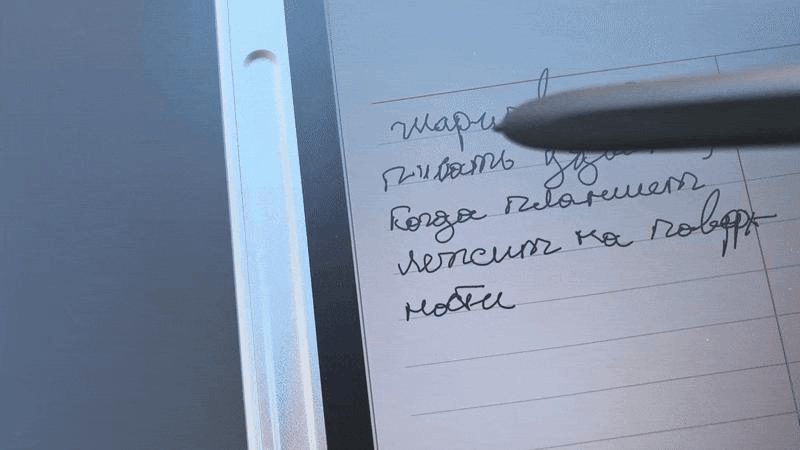 пивать удо
Когда планшет
лежит на поверх
ности